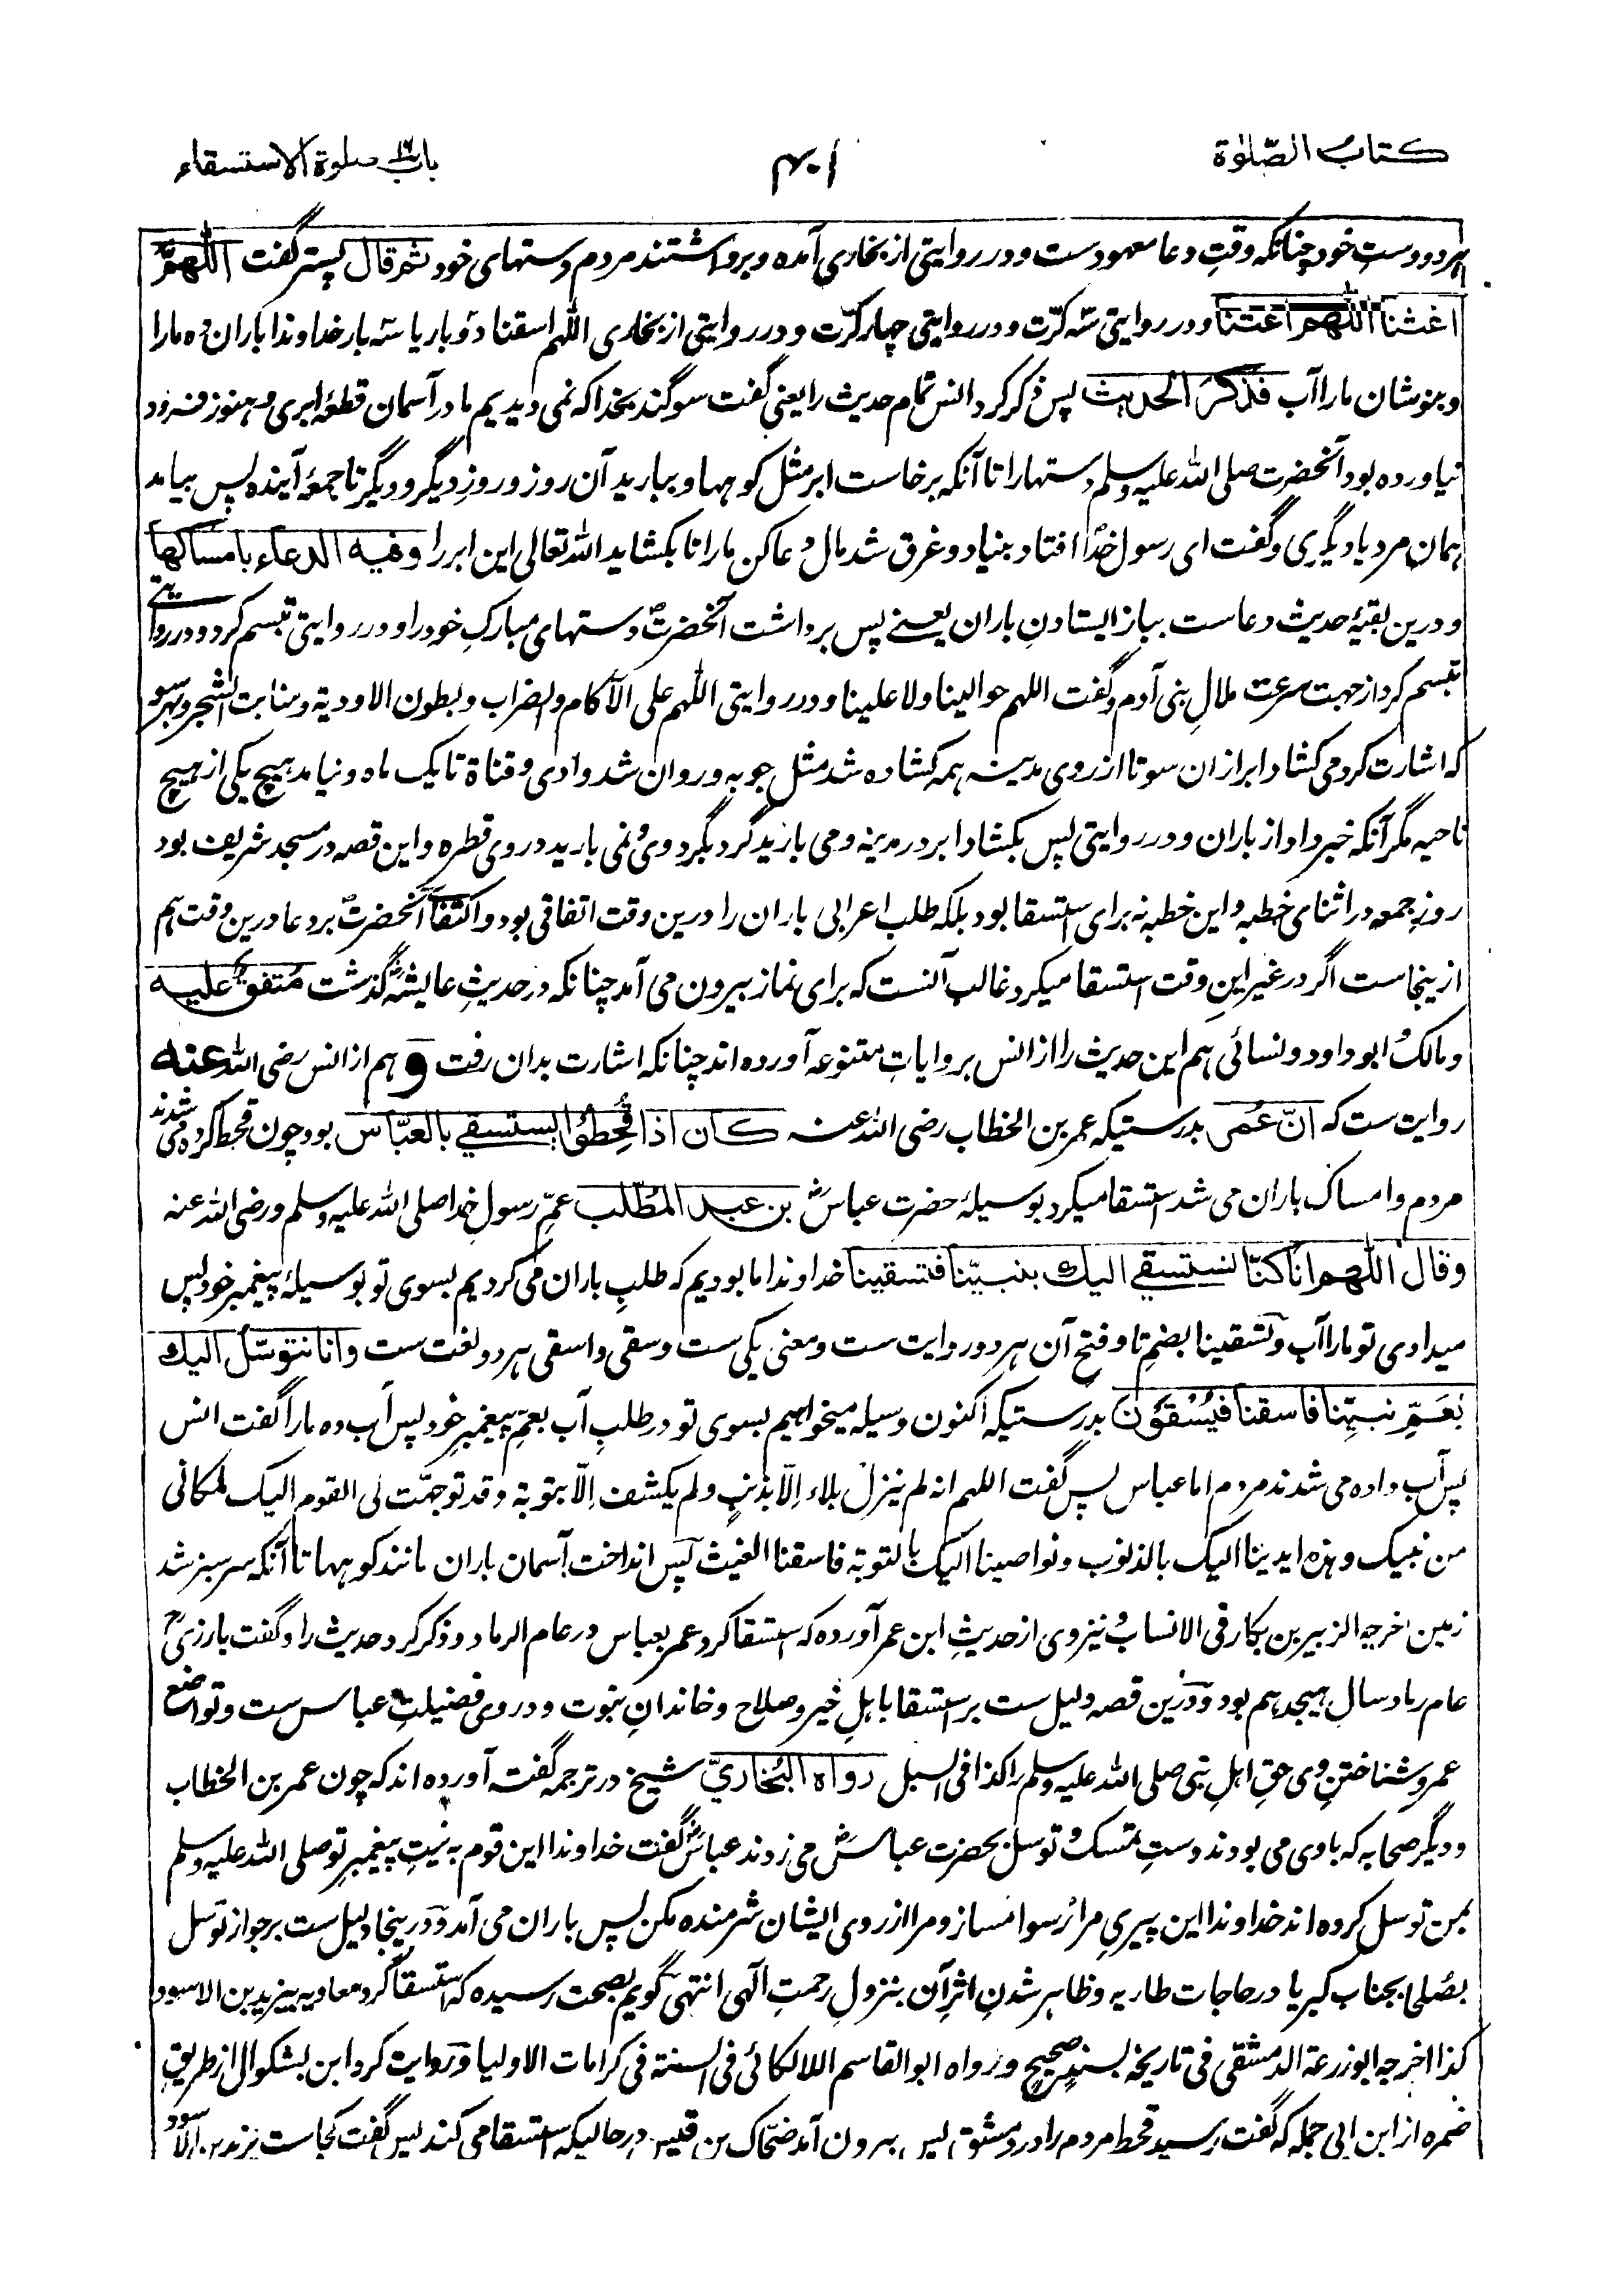 كتاب الصّلوٰة
۴۰۱
باب صلوة الاستسقاء
هر دو دستِ خود چنانکه وقتِ دعا معهودست و در روایتی از بخاری آمده و برداشتند مردم دستهای خود ثم قال پستر گفت اللّٰهمّ
اغثنا اللّٰهم اغثنا و در روایتی سه کرّت و در روایتی چهار کرّت و در روایتی از بخاری اللّٰهم اسقنا دو بار یا سه بار خداوندا باران ده ما را
و بنوشان ما را آب فذكر الحديث پس ذکر کرد انس تمام حدیث را یعنی گفت سوگند بخدا که نمی دیدیم ما در آسمان قطعهٔ ابری و هنوز فرود
نیاورده بود آنحضرت صلی الله علیه وسلم دستها را تا آنکه برخاست ابر مثل کوهها و ببارید آن روز و روزِ دیگر و دیگر تا جمعهٔ آینده پس بیامد
همان مرد یا دیگری و گفت ای رسول خدا افتاد بنیاد و غرق شد مال دعا کن ما را تا بکشاید الله تعالی این ابر را وفيه الدعاء بامساكها
و درین بقیهٔ حدیث دعاست بباز ایستادنِ باران یعنے پس برداشت آنحضرتؐ دستهای مبارکِ خود را و در روایتی تبسم کرد و در روایتے
تبسم کرد از جهت سرعت ملالِ بنی آدم و گفت اللهم حوالينا ولا علينا و در روایتی اللّٰهم علی الآكام والضراب وبطون الاودية ومنابت الشجر و بهر سو
که اشارت کرد می کشاد ابر ازان سو تا از روی مدینه همه کشاده شد مثل جوبه و روان شد وادی و قناة تا یک ماه و نیامد هیچ یکی از هیچ
ناحیه مگر آنکه خبر داد از باران و در روایتی پس بکشاد ابر در مدینه و می بارید گرد بگرد وی و نمی بارید در وی قطره و این قصه در مسجد شریف بود
روزِ جمعه در اثنای خطبه و این خطبه نه برای استسقا بود بلکه طلب اعرابی باران را درین وقت اتفاقی بود و اکتفا آنحضرتؐ بر دعا درین وقت هم
ازینجاست اگر در غیر این وقت استسقا میکرد غالب آنست که برای نماز بیرون می آمد چنانکه در حدیثِ عایشهؓ گذشت مُتفقٌ عليه
و مالکؒ و ابوداود و نسائی هم این حدیث را از انس بروایاتِ متنوعه آورده اند چنانکه اشارت بدان رفت وَ هم از انس رضی الله عنه
روایت ست که انّ عُمر بدرستیکه عمر بن الخطاب رضی الله عنه كان اذا قُحِطُوا يستسقي بالعبّاس بود چون قحط کرده می شدند
مردم و امساک باران می شد استسقا میکرد بوسیلهٔ حضرت عباسؓ بن عبد المُطّلب عمّ رسولِ خدا صلی الله علیه وسلم و رضی الله عنه
وقال اللّٰهم انا كنّا نستسقي اليك بنبيّنا فتسقينا خداوندا ما بودیم که طلبِ باران می کردیم بسوی تو بوسیلهٔ پیغمبرِ خود پس
میدادی تو ما را آب و تسقینا بضمِ تا و فتح آن هر دو روایت ست و معنی یکی ست و سقی و اسقی هر دو لغت ست وانا نتوسّل اليك
بعَمِّ نبيّنا فاسقنا فيُسْقَوْن بدرستیکه اکنون وسیله میخواهیم بسوی تو در طلبِ آب بعمِّ پیغمبرِ خود پس آب ده ما را گفت انس
پس آب داده می شدند مردم اما عباس پس گفت اللهم انه لم ينزل بلاء اِلّا بذنبٍ ولم يكشف اِلّا بتوبة وقد توجّهت لی القوم اليك لمكانی
من نبيك وهذه ايدينا اليك بالذنوب ونواصينا اليك بالتوبة فاسقنا الغيث پس انداخت آسمان باران مانند کوهها تا آنکه سرسبز شد
زمین اخرجه الزبير بن بكار فی الانساب و نیز وی از حدیثِ ابن عمر آورده که استسقا کرد عمر بعباس در عام الرماد و ذکر کرد حدیث را و گفت بارزیؒ
عام رماد سال هیجدهم بود و درین قصه دلیل ست بر استسقا باهلِ خیر و صلاح و خاندانِ نبوت و در وی فضیلتِ عباس ست و تواضع
عمر و شناختنِ وی حقِ اهلِ بیتِ نبی صلی الله علیه وسلم را كذا فی السبل رواه البُخاريّ شیخ در ترجمه گفت آورده اند که چون عمر بن الخطاب
و دیگر صحابه که با وی می بودند دستِ تمسک و توسل بحضرت عباسؓ می زدند عباسؓ گفت خداوندا این قوم به نیتِ پیغمبرِ تو صلی الله علیه وسلم
بمن توسل کرده اند خداوندا این پیریِ مرا رسوا مساز و مرا از روی ایشان شرمنده مکن پس باران می آمد و درینجا دلیل ست بر جواز توسل
بصلحا بجناب کبریا در حاجات طاریه و ظاهر شدنِ اثرِ آن بنزولِ رحمتِ الٓهی انتهیٰ گویم بصحت رسیده که استسقا کرد معاویه بیزید بن الاسود
كذا اخرجه ابو زرعة الدمشقی فی تاريخه بسندٍ صحيحٍ ورواه ابو القاسم اللالكائی فی السنة فی كرامات الاوليا و روایت کرد ابن بشکوال از طریقِ
ضمره از ابن ابی حمله که گفت رسید قحط مردم را در دمشق پس بیرون آمد ضحّاک بن قیس در حالیکه استسقا می کند پس گفت کجاست یزید بن الاسود